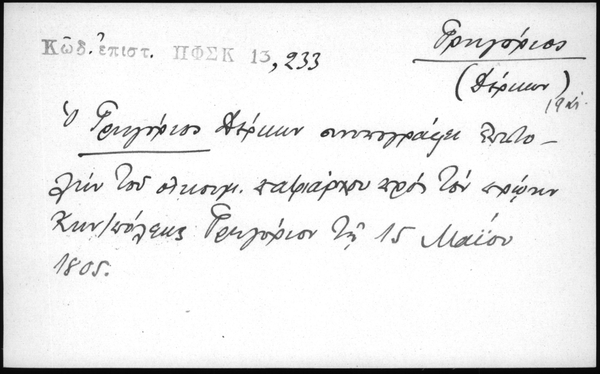 Κῶδ. ἐπιστ. ΠΦΣΚ 13,233
Γρηγόριος
(Δέρκων)
Ὁ Γρηγόριος Δέρκων συνυπογράφει ἐπιστο-
λήν τοῦ οἰκουμ. πατριάρχου πρός τόν πρώην
Κων/πόλεως Γρηγόριον τῇ 15 Μαΐου
1805.